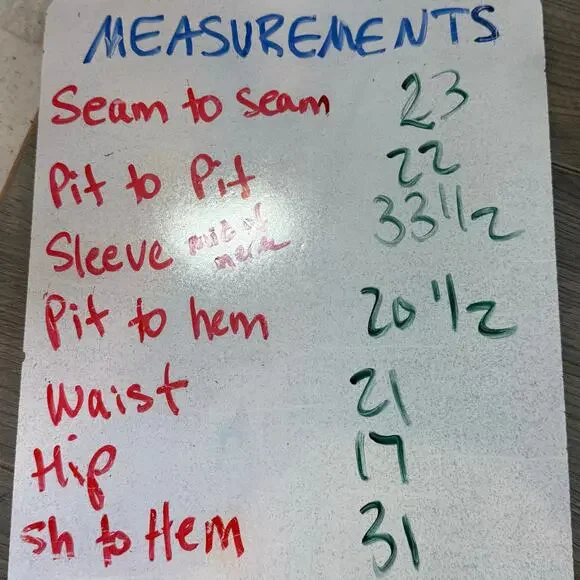 MEASUREMENTS
Seam to seam 23
Pit to Pit 22
Sleeve mid of neck 33 1/2
Pit to hem 20 1/2
Waist 21
Hip 17
sh to Hem 31